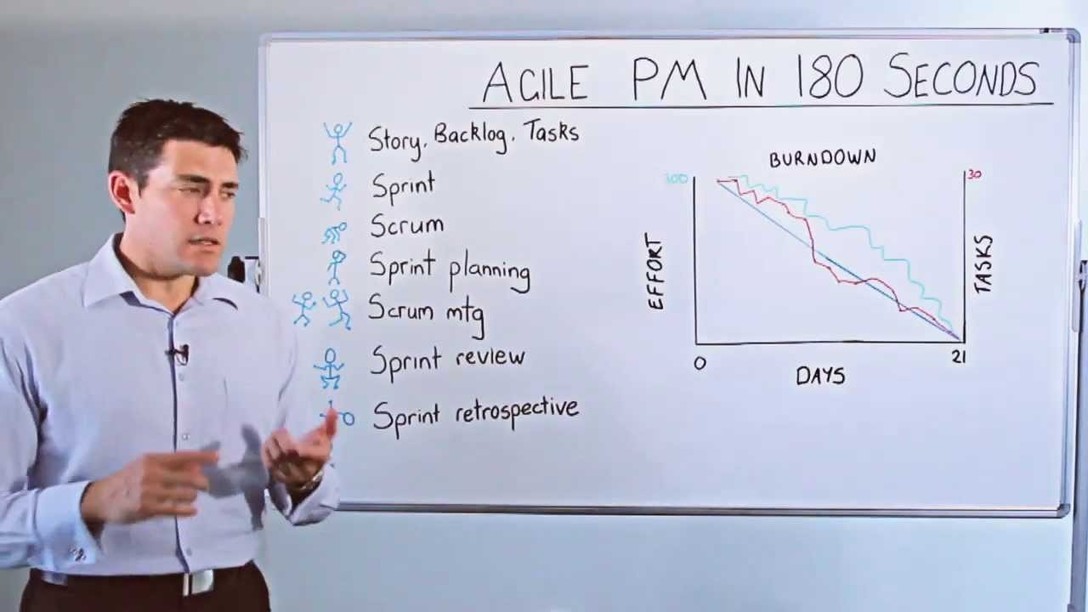 AGILE PM IN 180 SECONDS
Story, Backlog, Tasks
Sprint
Scrum
Sprint planning
Scrum mtg
Sprint review
Sprint retrospective
BURNDOWN
100
30
EFFORT
TASKS
0
21
DAYS